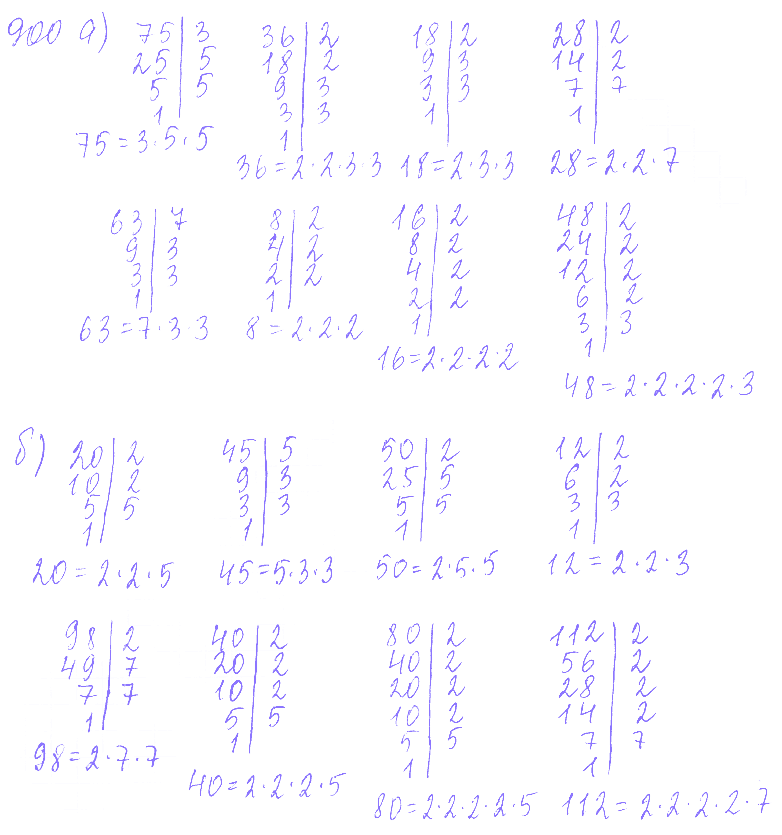 900 а) 75 | 3 36 | 2 18 | 2 28 | 2
25 | 5 18 | 2 9 | 3 14 | 2
5 | 5 9 | 3 3 | 3 7 | 7
1 | 3 | 3 1 | 1 |
75 = 3 · 5 · 5 1 |
36 = 2 · 2 · 3 3 18 = 2 · 3 · 3 28 = 2 · 2 · 7
63 | 7 8 | 2 16 | 2 48 | 2
9 | 3 4 | 2 8 | 2 24 | 2
3 | 3 2 | 2 4 | 2 12 | 2
1 | 1 | 2 | 2 6 | 2
63 = 7 · 3 · 3 8 = 2 · 2 · 2 1 | 3 | 3
16 = 2 · 2 · 2 · 2 1 |
48 = 2 · 2 · 2 · 2 · 3
б) 20 | 2 45 | 5 50 | 2 12 | 2
10 | 2 9 | 3 25 | 5 6 | 2
5 | 5 3 | 3 5 | 5 3 | 3
1 | 1 | 1 | 1 |
20 = 2 · 2 · 5 45 = 5 · 3 · 3 50 = 2 · 5 · 5 12 = 2 · 2 · 3
98 | 2 40 | 2 80 | 2 112 | 2
49 | 7 20 | 2 40 | 2 56 | 2
7 | 7 10 | 2 20 | 2 28 | 2
1 | 5 | 5 10 | 2 14 | 2
98 = 2 · 7 · 7 1 | 5 | 5 7 | 7
40 = 2 · 2 · 2 · 5 1 | 1 |
80 = 2 · 2 · 2 · 2 · 5 112 = 2 · 2 · 2 · 2 · 7